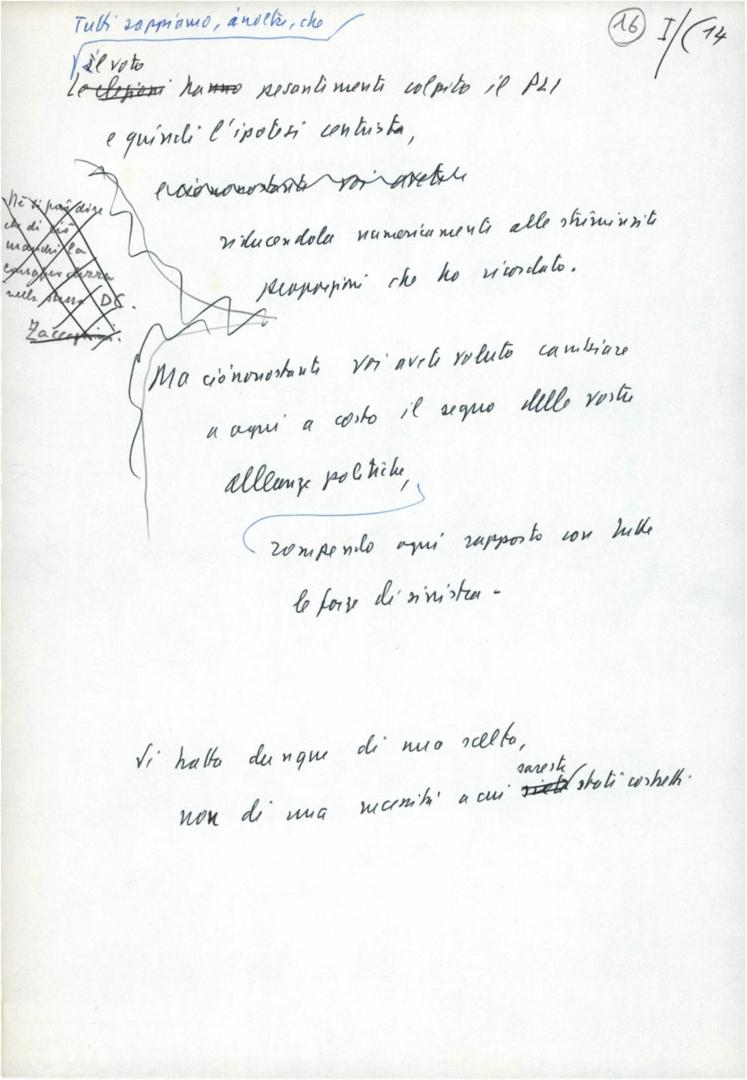 16 I/(14
Tutti sappiamo, inoltre, che
il voto
Le elezioni hanno pesantemente colpito il PLI
e quindi l'ipotesi centrista,
e ciononostante voi avete
riducendola numericamente alle striminzite
proporzioni che ho ricordato.
Nè si può dire
che di ciò
manchi la
consapevolezza
nella stessa DC.
Zaccagnini.
Ma ciònonostante voi avete voluto cambiare
a ogni a costo il segno delle vostre
alleanze politiche,
rompendo ogni rapporto con tutte
le forze di sinistra -
Si tratta dunque di una scelta,
sareste
non di una necessità a cui siete stati costretti.